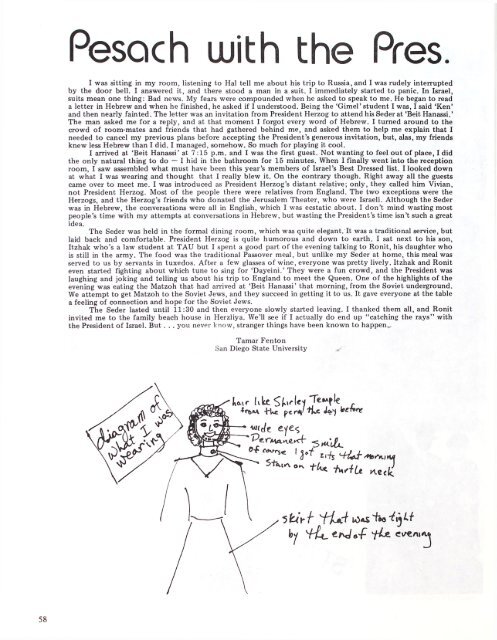 Pesach with the Pres.
I was sitting in my room, listening to Hal tell me about his trip to Russia, and I was rudely interrupted
by the door bell. I answered it, and there stood a man in a suit. I immediately started to panic. In Israel,
suits mean one thing: Bad news. My fears were compounded when he asked to speak to me. He began to read
a letter in Hebrew and when he finished, he asked if I understood. Being the 'Gimel' student I was, I said 'Ken'
and then nearly fainted. The letter was an invitation from President Herzog to attend his Seder at 'Beit Hanassi.'
The man asked me for a reply, and at that moment I forgot every word of Hebrew. I turned around to the
crowd of room-mates and friends that had gathered behind me, and asked them to help me explain that I
needed to cancel my previous plans before accepting the President's generous invitation, but, alas, my friends
knew less Hebrew than I did. I managed, somehow. So much for playing it cool.
I arrived at 'Beit Hanassi' at 7:15 p.m. and I was the first guest. Not wanting to feel out of place, I did
the only natural thing to do — I hid in the bathroom for 15 minutes. When I finally went into the reception
room, I saw assembled what must have been this year's members of Israel's Best Dressed list. I looked down
at what I was wearing and thought that I really blew it. On the contrary though. Right away all the guests
came over to meet me. I was introduced as President Herzog's distant relative; only, they called him Vivian,
not President Herzog. Most of the people there were relatives from England. The two exceptions were the
Herzogs, and the Herzog's friends who donated the Jerusalem Theater, who were Israeli. Although the Seder
was in Hebrew, the conversations were all in English, which I was ecstatic about. I don't mind wasting most
people's time with my attempts at conversations in Hebrew, but wasting the President's time isn't such a great
idea.
The Seder was held in the formal dining room, which was quite elegant. It was a traditional service, but
laid back and comfortable. President Herzog is quite humorous and down to earth. I sat next to his son,
Itzhak who's a law student at TAU but I spent a good part of the evening talking to Ronit, his daughter who
is still in the army. The food was the traditional Passover meal, but unlike my Seder at home, this meal was
served to us by servants in tuxedos. After a few glasses of wine, everyone was pretty lively. Itzhak and Ronit
even started fighting about which tune to sing for 'Dayeini.' They were a fun crowd, and the President was
laughing and joking and telling us about his trip to England to meet the Queen. One of the highlights of the
evening was eating the Matzoh that had arrived at 'Beit Hanassi' that morning, from the Soviet underground.
We attempt to get Matzoh to the Soviet Jews, and they succeed in getting it to us. It gave everyone at the table
a feeling of connection and hope for the Soviet Jews.
The Seder lasted until 11:30 and then everyone slowly started leaving. I thanked them all, and Ronit
invited me to the family beach house in Herzliya. We'll see if I actually do end up "catching the rays" with
the President of Israel. But . . . you never know, stranger things have been known to happen.
Tamar Fenton
San Diego State University
diagram of
what I was
wearing
hair like Shirley Temple
from the perm the day before
wide eyes
Permanent smile
of course I got zits that morning
Stain on the turtle neck
skirt that was too tight
by the end of the evening
58